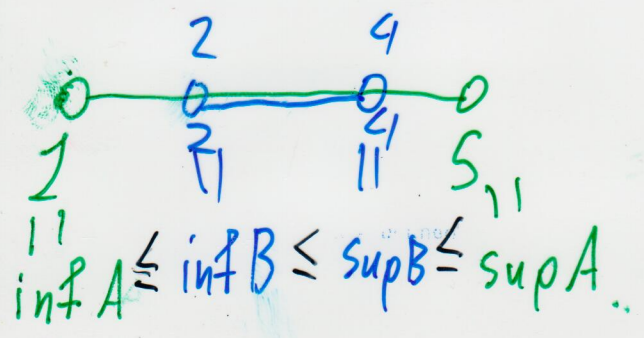 2 4
1 2 4 5
|| || || ||
inf A ≤ inf B ≤ sup B ≤ sup A.